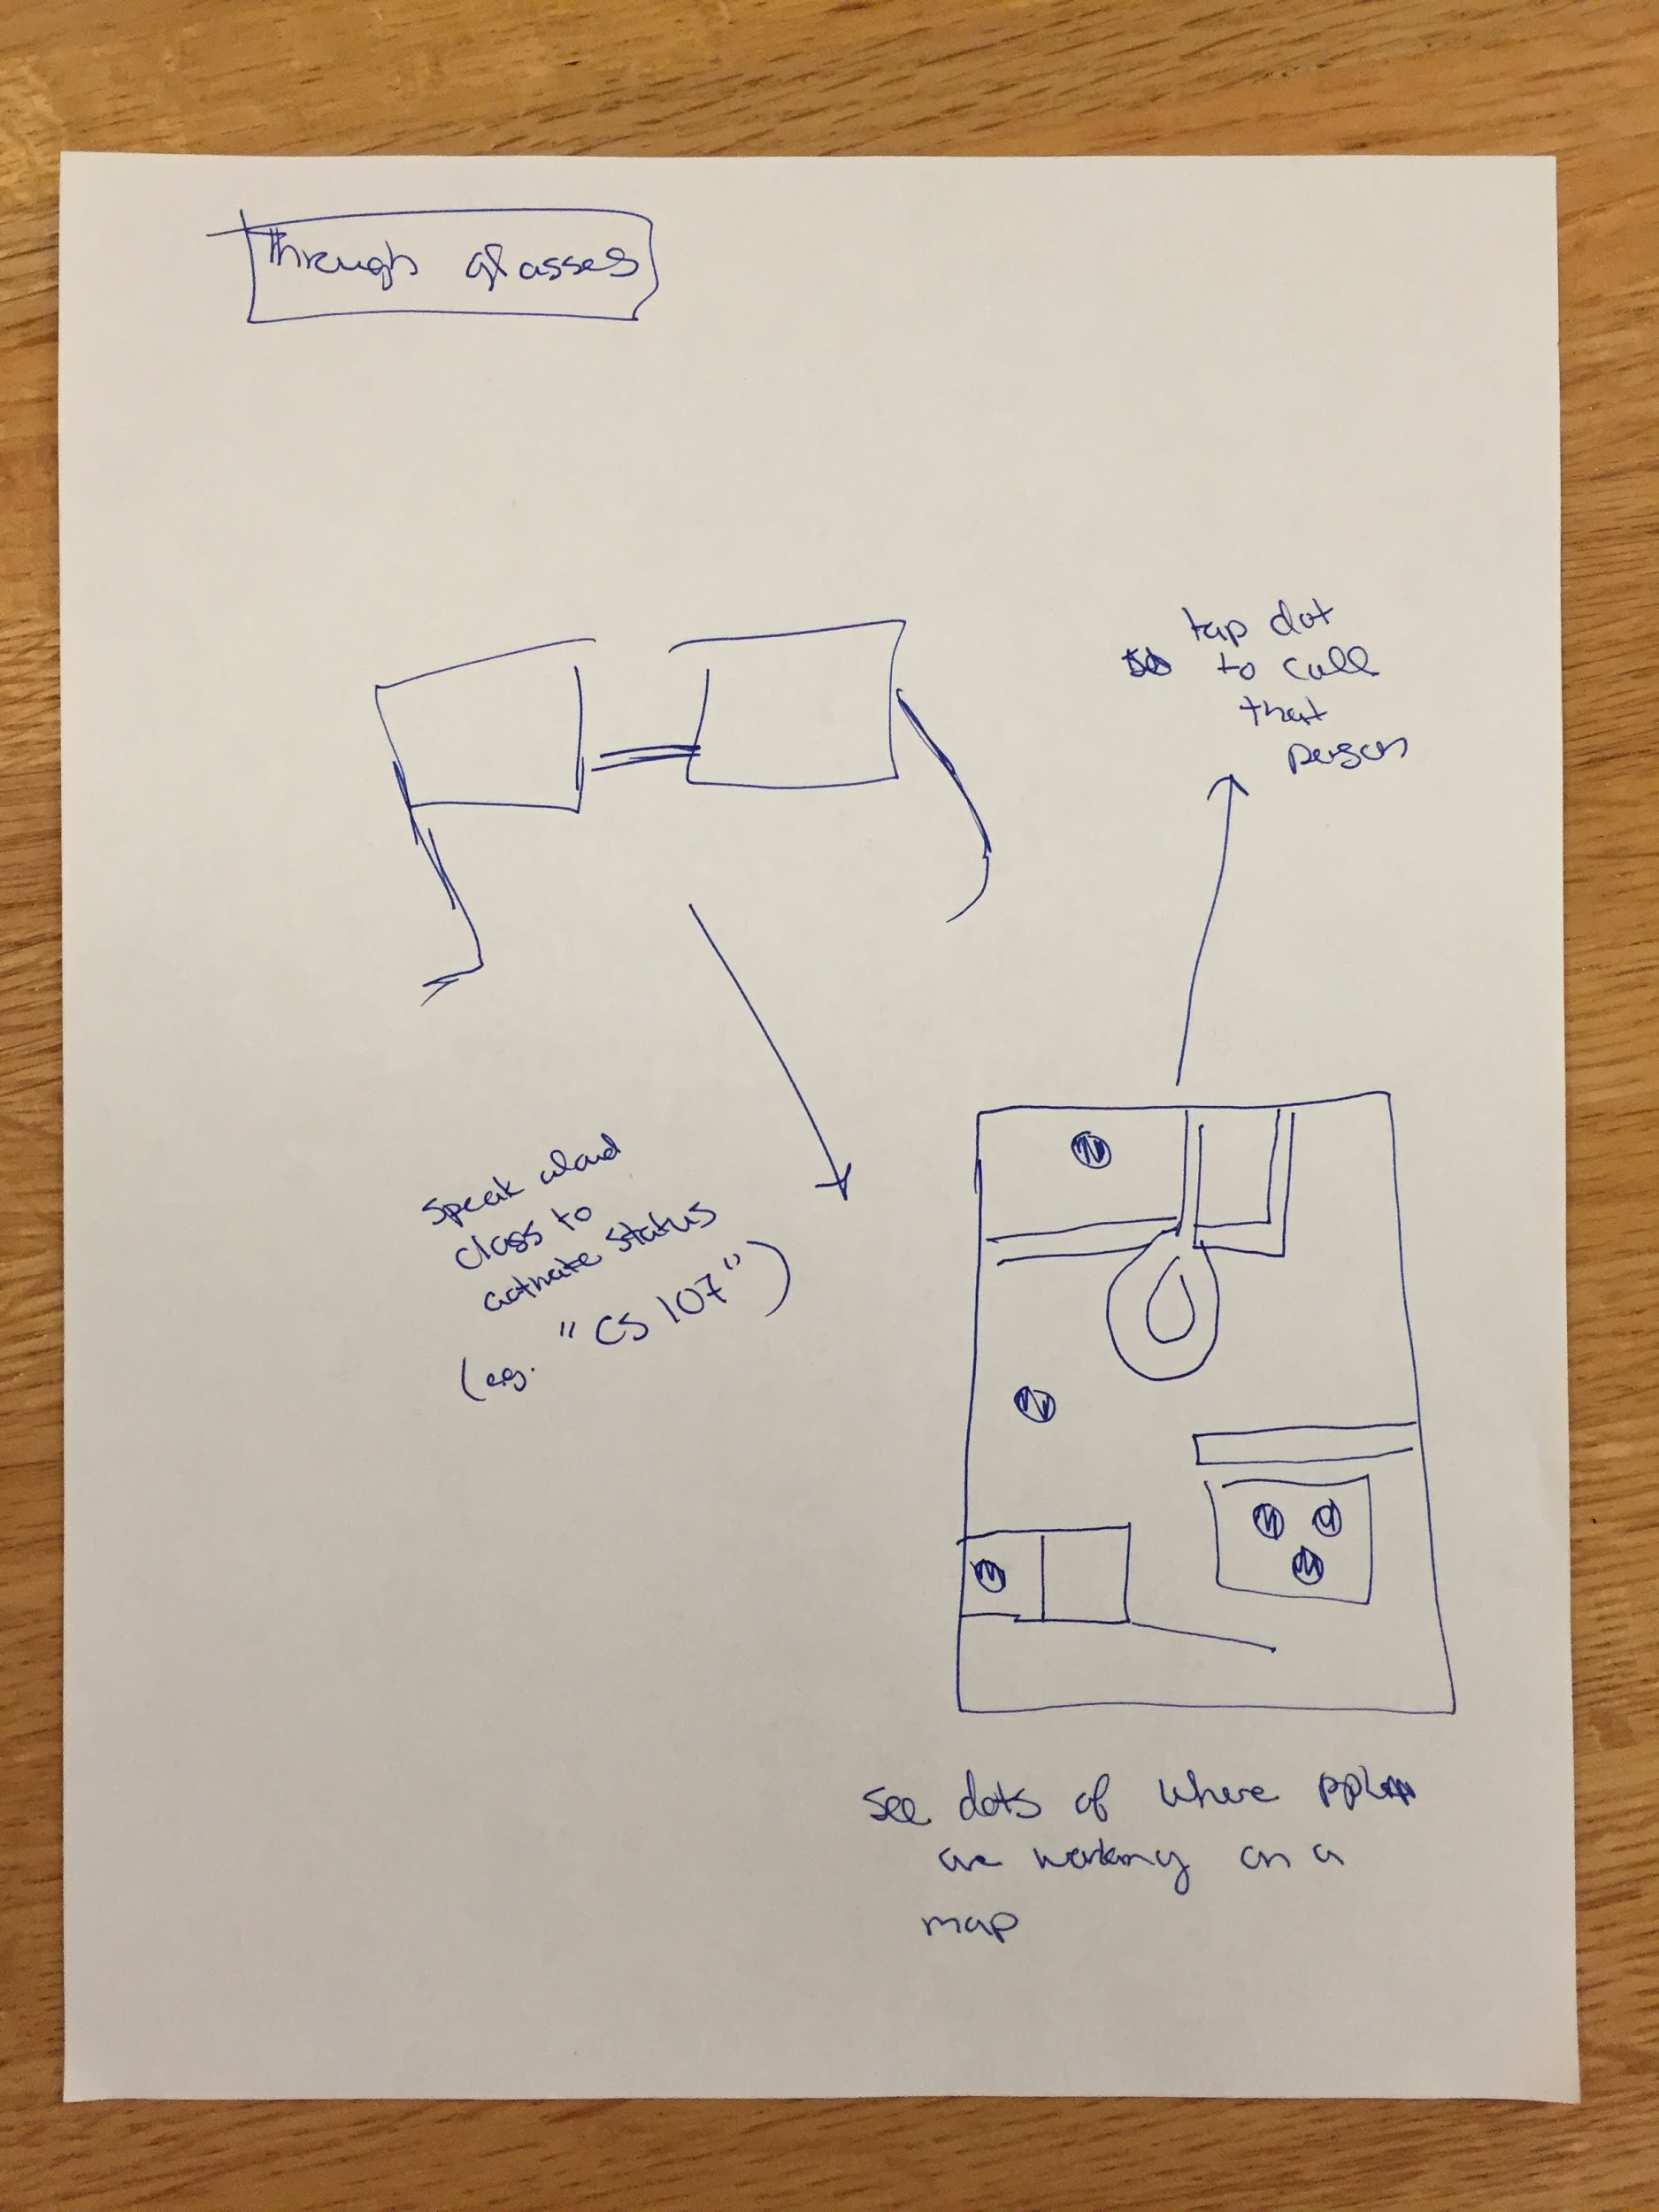 Through glasses
tap dot
to call
that
person
speak aloud
class to
activate status
(e.g. "CS 107")
see dots of where ppl
are working on a
map